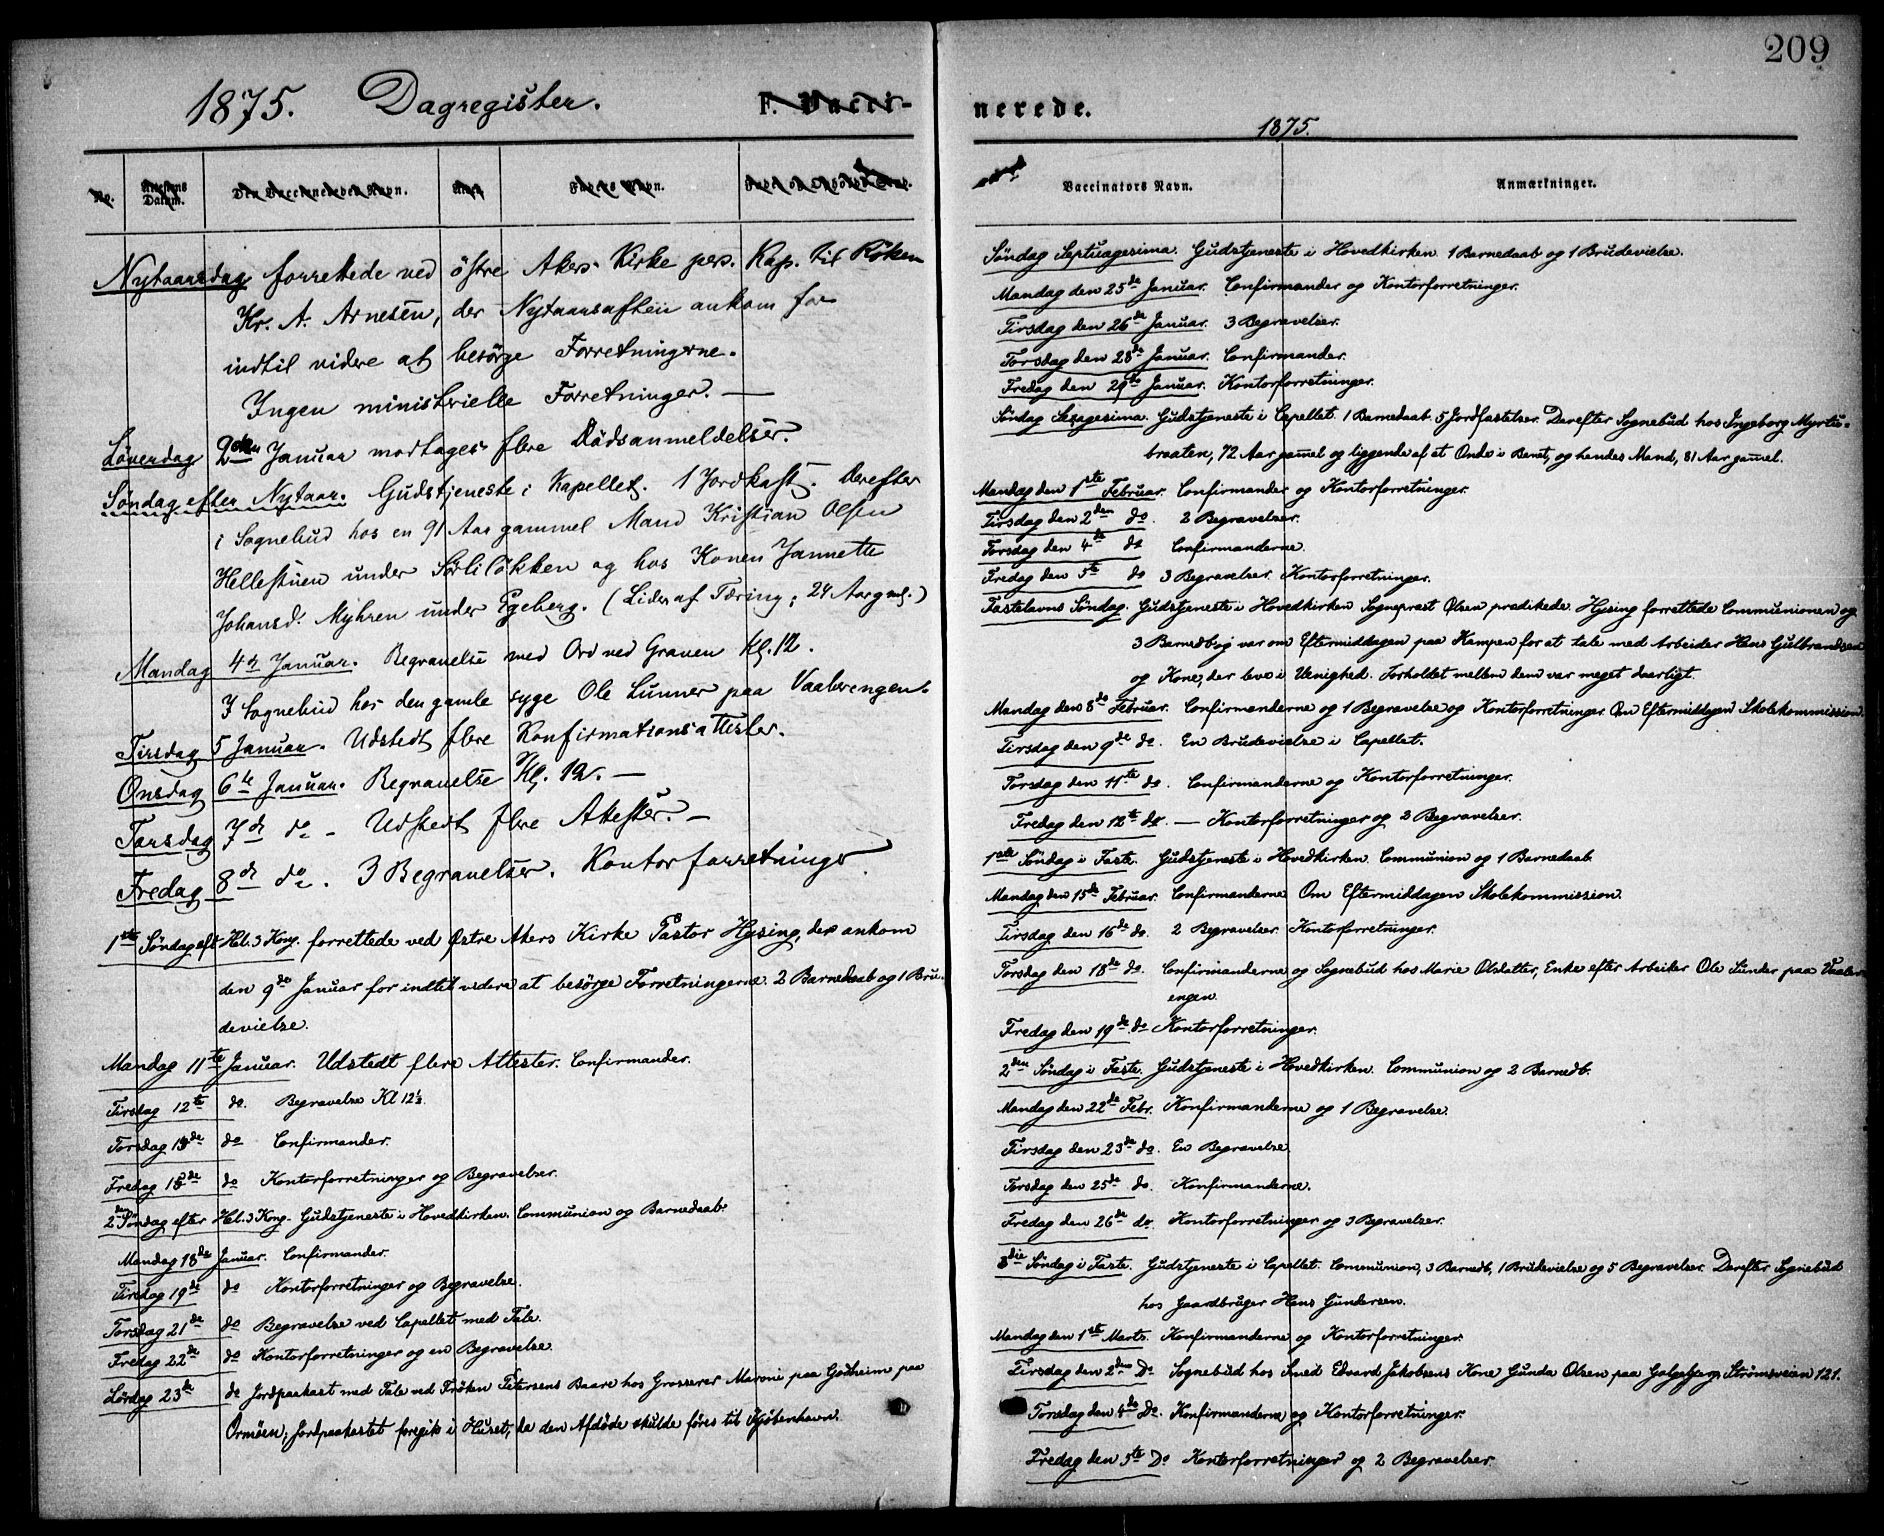 209
1875. Dagregister. F. Vacci-
nerede.
1875.
No.
Attestens Datum.
Den Vaccineredes Navn.
Alder
Faders Navn.
Vaccinators Navn.
Anmærkninger.
Nytaarsdag forrettede ved östre Akers Kirke pers. Kap. til Röken
Hr. A. Arnesen, der Nytaarsaften ankom for
indtil videre at besörge Forretningerne.
Ingen ministerielle Forretninger. —
Löverdag 2den Januar modtages flere Dödsanmeldelser.
Søndag efter Nytaar. Gudstjeneste i Kapellet. 1 Jordkast. Derefter
i Sognebud hos en 91 Aar gammel Mand Kristian Olsen
Hellestuen under Sörliløkken og hos Konen Jannette
Johansd. Myhren under Egeberg. (Lider af Tæring; 24 Aar gml.)
Mandag 4de Januar. Begravelse med Ord ved Graven Kl. 12.
I Sognebud hos den gamle syge Ole Lunner paa Vaalerengen.
Tirsdag 5 Januar. Udstedt flere Konfirmationsattester.
Onsdag 6te Januar. Begravelse Kl. 12. —
Torsdag 7de do – Udstedt flere Attester. –
Fredag 8de do. 3 Begravelser. Kontorforretninger.
1ste Søndag eft. Hel. 3 Kong. forrettede ved Østre Akers Kirke Pastor Hysing, der ankom
den 9de Januar for indtil videre at besörge Forretningerne. 2 Barnedaab og 1 Bru-
devielse.
Mandag 11te Januar. Udstedt flere Attester. Confirmander.
Tirsdag 12te do. Begravelse Kl 12½.
Torsdag de do Confirmander.
Fredag 15de do Kontorforretninger og Begravelser.
2den Søndag efter Hel. 3 Kong. Gudstjeneste i Hovedkirken. Communion og Barnedaab.
Mandag 18de Januar. Confirmander.
Tirsdag 19de do Kontorforretninger og Begravelse.
Torsdag 21de do Begravelse ved Capellet med Tale.
Fredag 22de do Kontorforretninger og en Begravelse.
Lørdag 23de do Jordpaakast med Tale ved Fröken Petersens Baare hos Grosserer Maroni paa Godheim paa
Ormöen; Jordpaakastet foregik i Huset, da den Afdöde skulde föres til Kjöbenhavn.
Søndag Septuagesima. Gudstjeneste i Hovedkirken. 1 Barnedaab og 1 Brudevielse.
Mandag den 25de Januar. Confirmander og Kontorforretninger.
Tirsdag den 26de Januar. 3 Begravelser.
Torsdag den 28de Januar. Confirmander.
Fredag den 29de Januar. Kontorforretninger.
Søndag Sexagesima. Gudstjeneste i Capellet. 1 Barnedaab. 5 Jordfæstelser. Derefter Sognebud hos Ingeborg Myrtue-
braaten, 72 Aar gamel og liggende af et Onde i Benet, og hendes Mand, 81 Aar gamel.
Mandag den 1ste Februar. Confirmander og Kontorforretninger.
Tirsdag den 2den do. 2 Begravelser.
Torsdag den 4de do Confirmanderne.
Fredag den 5te do 3 Begravelser. Kontorforretninger.
Fastelavns Søndag. Gudstjeneste i Hovedkirken. Sogneprest Olsen prædikede. Hysing forrettede Communionen og
3 Barnedb. og var om Eftermiddagen paa Kampen for at tale med Arbeider Hans Gulbrandsen
og Kone, der leve i Uenighed. Forholdet mellem dem var meget daarligt.
Mandag den 8de Februar. Confirmanderne og 1 Begravelse og Kontorforretninger. Om Eftermiddagen Skolekommission.
Tirsdag den 9de do. En Brudevielse i Capellet.
Torsdag den 11te do. Confirmanderne og Kontorforretninger.
Fredag den 12te do. — Kontorforretninger og 2 Begravelser.
1ste Søndag i Faste. Gudstjeneste i Hovedkirken. Communion og 1 Barnedaab.
Mandag den 15de Februar. Confirmanderne. Om Eftermiddagen Skolekommission.
Tirsdag den 16de do. 2 Begravelser. Kontorforretninger.
Torsdag den 18de do. Confirmanderne og Sognebud hos Marie Olsdatter, Enke efter Arbeider Ole Lunder paa Vaaler-
engen.
Fredag den 19de do Kontorforretninger.
2den Søndag i Faste. Gudstjeneste i Hovedkirken. Communion og 2 Barnedb.
Mandag den 22de Febr. Konfirmanderne og 1 Begravelse.
Tirsdag den 23de do. En Begravelse.
Torsdag den 25de do. Konfirmanderne.
Fredag den 26de do. Kontorforretninger og 3 Begravelser.
3die Søndag i Faste. Gudstjeneste i Capellet. Communion, 3 Barnedb, 1 Brudevielse og 5 Begravelser. Derefter Sognebud
hos Gaardbruger Hans Gundersen.
Mandag den 1ste Marts. Konfirmanderne og Kontorforretninger.
Tirsdag den 2den Do. Sognebud hos Smed Edvard Jakobsens Kone Gunda Olsen paa Galgebjerg, Strömsveien 121.
Torsdag den 4de Do. Konfirmanderne og Kontorforretninger.
Fredag den 5te Do Kontorforretninger og 2 Begravelser.